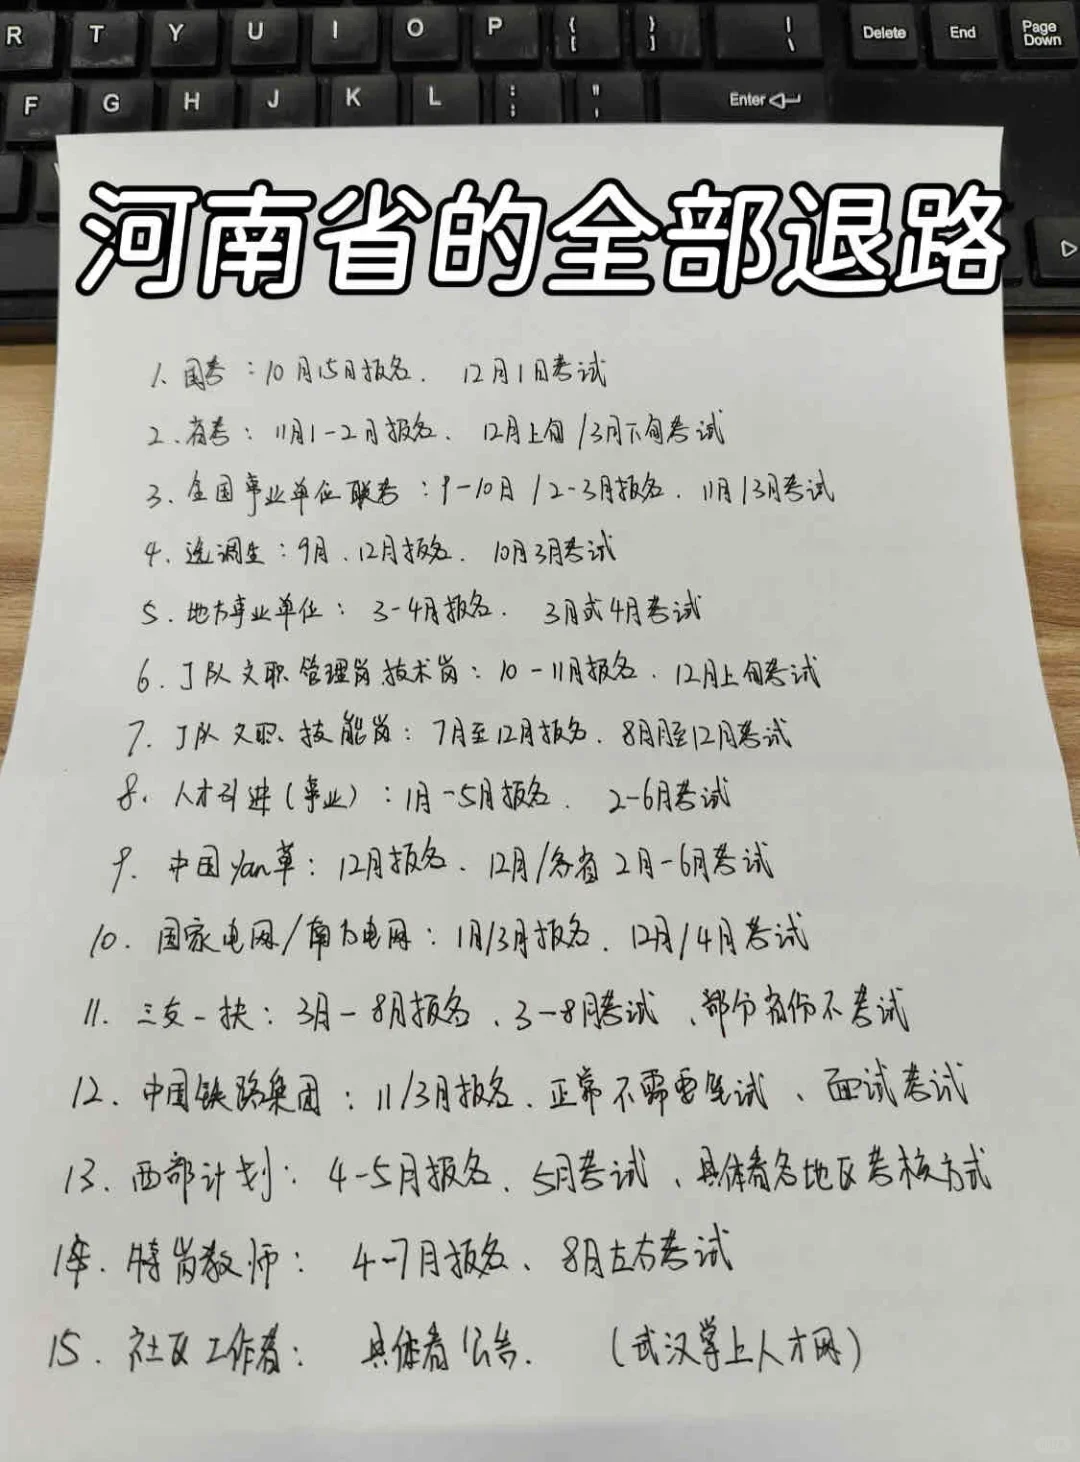 R T Y U I O P { [ } ] | \ Delete End Page Down
F G H J K L : ; " ' Enter
河南省的全部退路
1、国考：10月15日报名、12月1日考试
2、省考：11月1-2月报名、12月上旬/3月下旬考试
3、全国事业单位联考：9-10月/2-3月报名、11月/3月考试
4、选调生：9月、12月报名、10月3月考试
5、地方事业单位：3-4月报名、3月或4月考试
6、J队文职管理岗技术岗：10-11月报名、12月上旬考试
7、J队文职、技能岗：7月至12月报名、8月至12月考试
8、人才引进（事业）：1月-5月报名、2-6月考试
9、中国yan草：12月报名、12月/各省2月-6月考试
10、国家电网/南方电网：1月/3月报名、12月/4月考试
11、三支一扶：3月-8月报名、3-8月考试、部分省份不考试
12、中国铁路集团：11/3月报名、正常不需要笔试、面试考试
13、西部计划：4-5月报名、5月考试、具体看各地区考核方式
14、特岗教师：4-7月报名、8月左右考试
15、社区工作者：具体看公告.（武汉掌上人才网）